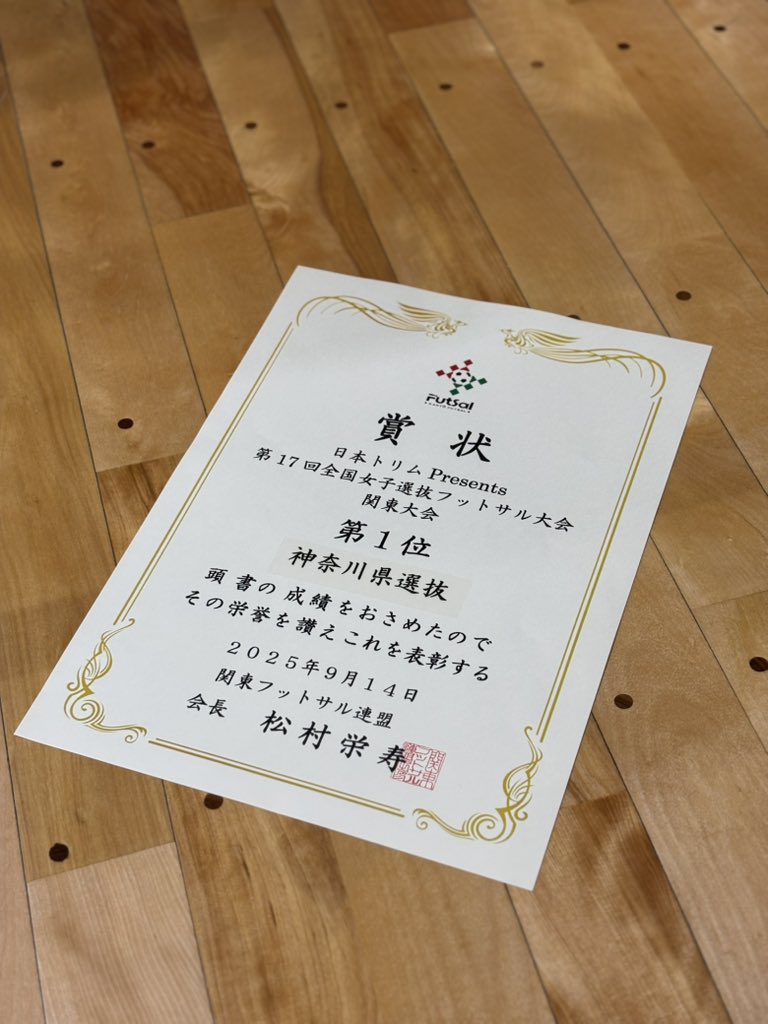 Futsal
賞状
日本トリム Presents
第17回全国女子選抜フットサル大会
関東大会
第1位
神奈川県選抜
頭書の成績をおさめたので
その栄誉を讃えこれを表彰する
2025年9月14日
関東フットサル連盟
会長 松村栄寿